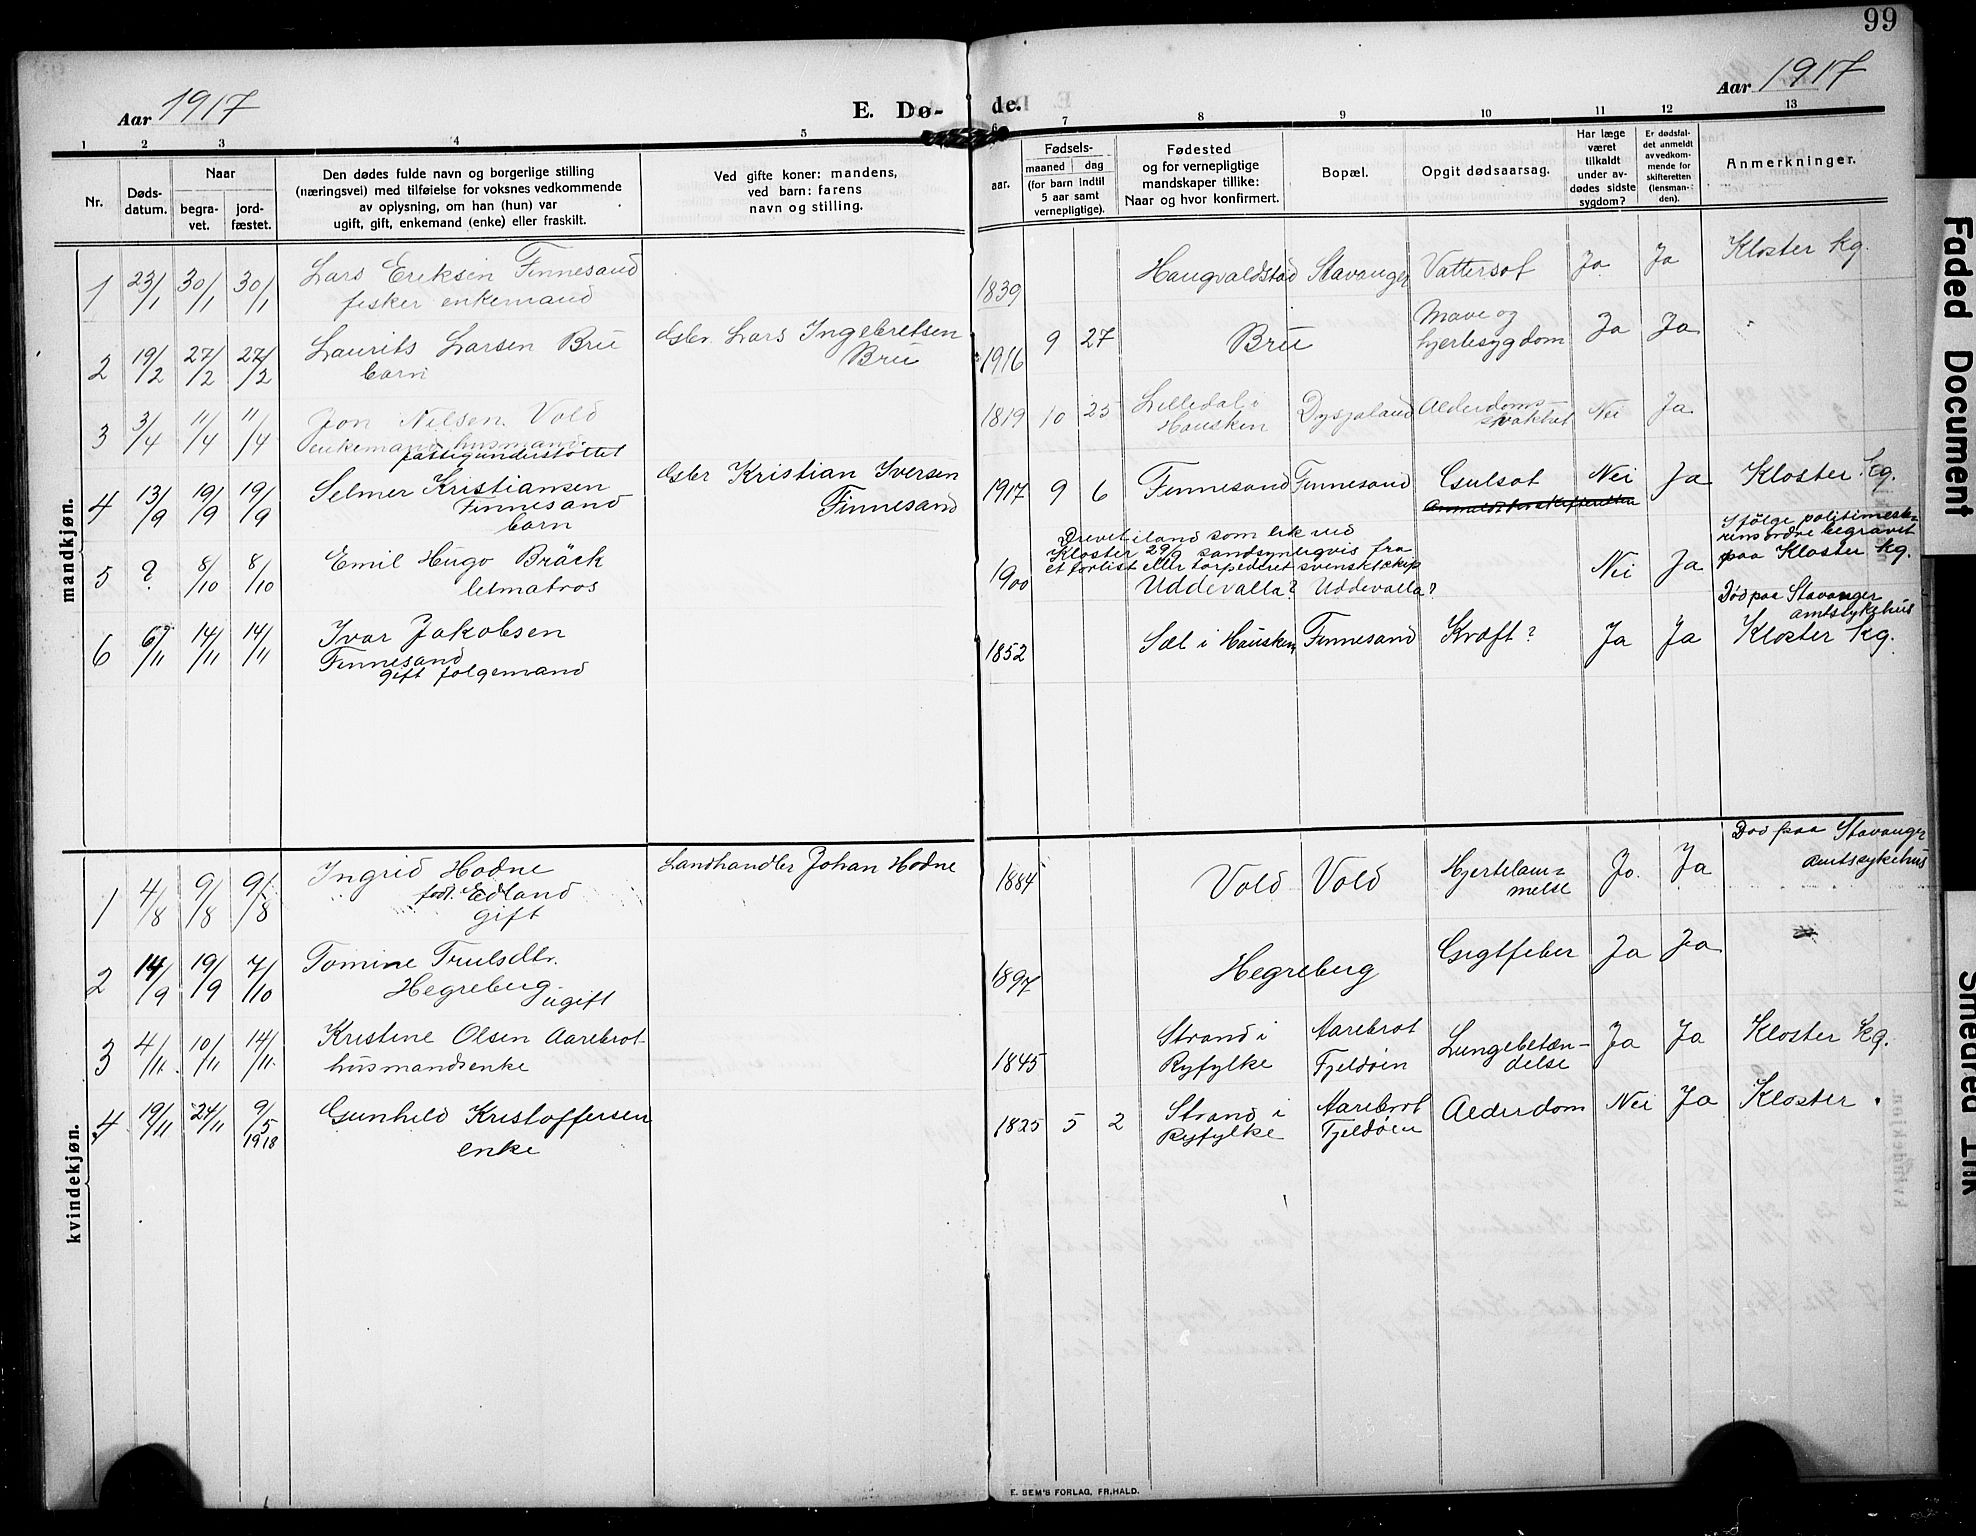 99
Aar 1917
E. Dø- de.
Aar 1917
1 2 3 4 5 6 7 8 9 10 11 12 13
Nr.
Døds-
datum.
Naar
begra-
vet.
jord-
fæstet.
Den dødes fulde navn og borgerlige stilling
(næringsvei) med tilføielse for voksnes vedkommende
av oplysning, om han (hun) var
ugift, gift, enkemand (enke) eller fraskilt.
Ved gifte koner: mandens,
ved barn: farens
navn og stilling.
aar.
Fødsels-
maaned dag
(for barn indtil
5 aar samt
vernepligtige).
Fødested
og for vernepligtige
mandskaper tillike:
Naar og hvor konfirmert.
Bopæl.
Opgit dødsaarsag.
Har læge
været
tilkaldt
under av-
dødes sidste
sygdom?
Er dødsfal-
det anmeldt
av vedkom-
mende for
skifteretten
(lensman-
den).
Anmerkninger.
mandkjøn.
1 23/1 30/1 30/1 Lars Eriksen Finnesand
fisker enkemand
1839 Haugvaldstad Stavanger Vattersot Ja Ja Kloster kg.
2 19/2 27/2 27/2 Laurits Larsen Bru
barn
Gbr. Lars Ingebretsen
Bru
1916 9 27 Bru Mave og
hjertesygdom Ja Ja
3 3/4 11/4 11/4 Jon Nilsen Vold
enkemand husmand
fattigunderstøttet
1819 10 25 Lilledal i
Hausken Dysjaland Alderdoms-
svakhet Nei Ja
4 13/9 19/9 19/9 Selmer Kristiansen
Finnesand
barn
Gbr Kristian Iversen
Finnesand
1917 9 6 Finnesand Finnesand Gulsot Nei Ja Kloster kg.
5 ? 8/10 8/10 Emil Hugo Bräck
letmatros
1900 Drevet iland som lik ved
Kloster 29/9 sandsynligvis fra
et forlist eller torpederet svensk skip
Uddevalla? Uddevalla? Nei Ja
Ifølge politimeste-
rens ordre begravet
paa Kloster kg.
6 6/11 14/11 14/11 Ivar Jakobsen
Finnesand
gift følgemand
1852 Sæl i Hausken Finnesand Kræft? Ja Ja
Død paa Stavanger
amtssykehus
Kloster kg.
kvindekjøn.
1 4/8 9/8 9/8 Ingrid Hodne
født Edland
gift
Landhandler Johan Hodne
1884 Vold Vold Hjertelam-
melse Ja Ja
Død paa Stavanger
Amtssykehus
2 14/9 19/9 7/10 Tomine Trulsdtr.
Hegreberg
ugift
1897 Hegreberg Gigtfeber Ja Ja
3 4/11 10/11 14/11 Kristine Olsen Aarebrot
husmandsenke
1845 Strand i
Ryfylke Aarebrot
Fjeldøen Lungebetæn-
delse Ja Ja Kloster kg.
4 19/11 24/11 9/5
1918 Gunhild Kristoffersen
enke
1825 5 2 Strand i
Ryfylke Aarebrot
Fjeldøen Alderdom Nei Ja Kloster.
E. SEM'S FORLAG, FR.HALD.
Faded Document
Smeared Ink